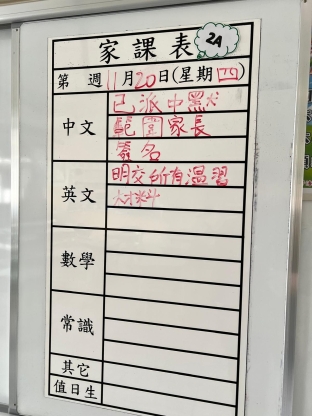 家課表 2A
第 週 11月20日(星期四)
中文
已派中黑水
範圍家長
簽名
英文
明交所有温習
材料
數學
常識
其它
值日生